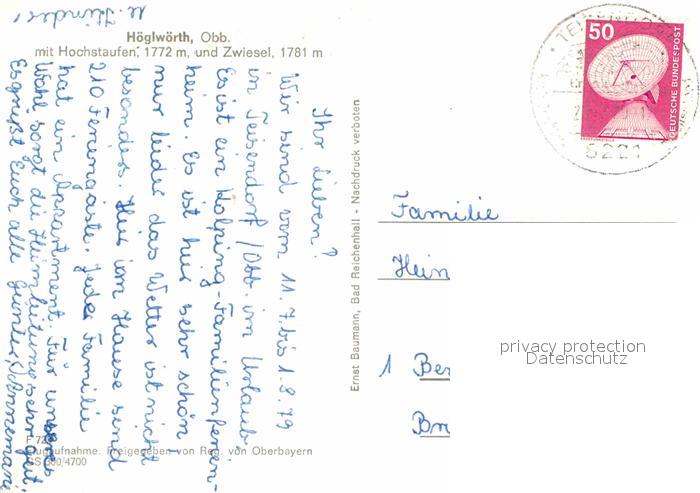 Höglwörth, Obb.
mit Hochstaufen, 1772 m, und Zwiesel, 1781 m
Ihr Lieben!
Wir sind vom 11.7. bis 1.8.79
in Teisendorf/Obb. im Urlaub.
Es ist ein Kolping-Familienferien-
heim. Es ist hier sehr schön
nur leider das Wetter ist nicht
besonders. Hier im Hause sind
210 Feriengäste. Jede Familie
hat ein Appartment. Für unser
Wohl sorgt die Heimleitung sehr gut.
Es grüßt Euch alle Günter,
u. Kinder
Ernst Baumann, Bad Reichenhall - Nachdruck verboten
F 72
Flugaufnahme. Freigegeben von Reg. von Oberbayern
300/4700
50
DEUTSCHE BUNDESPOST
TEISENDORF
8221
Familie
Hein
1 Ber
privacy protection
Datenschutz